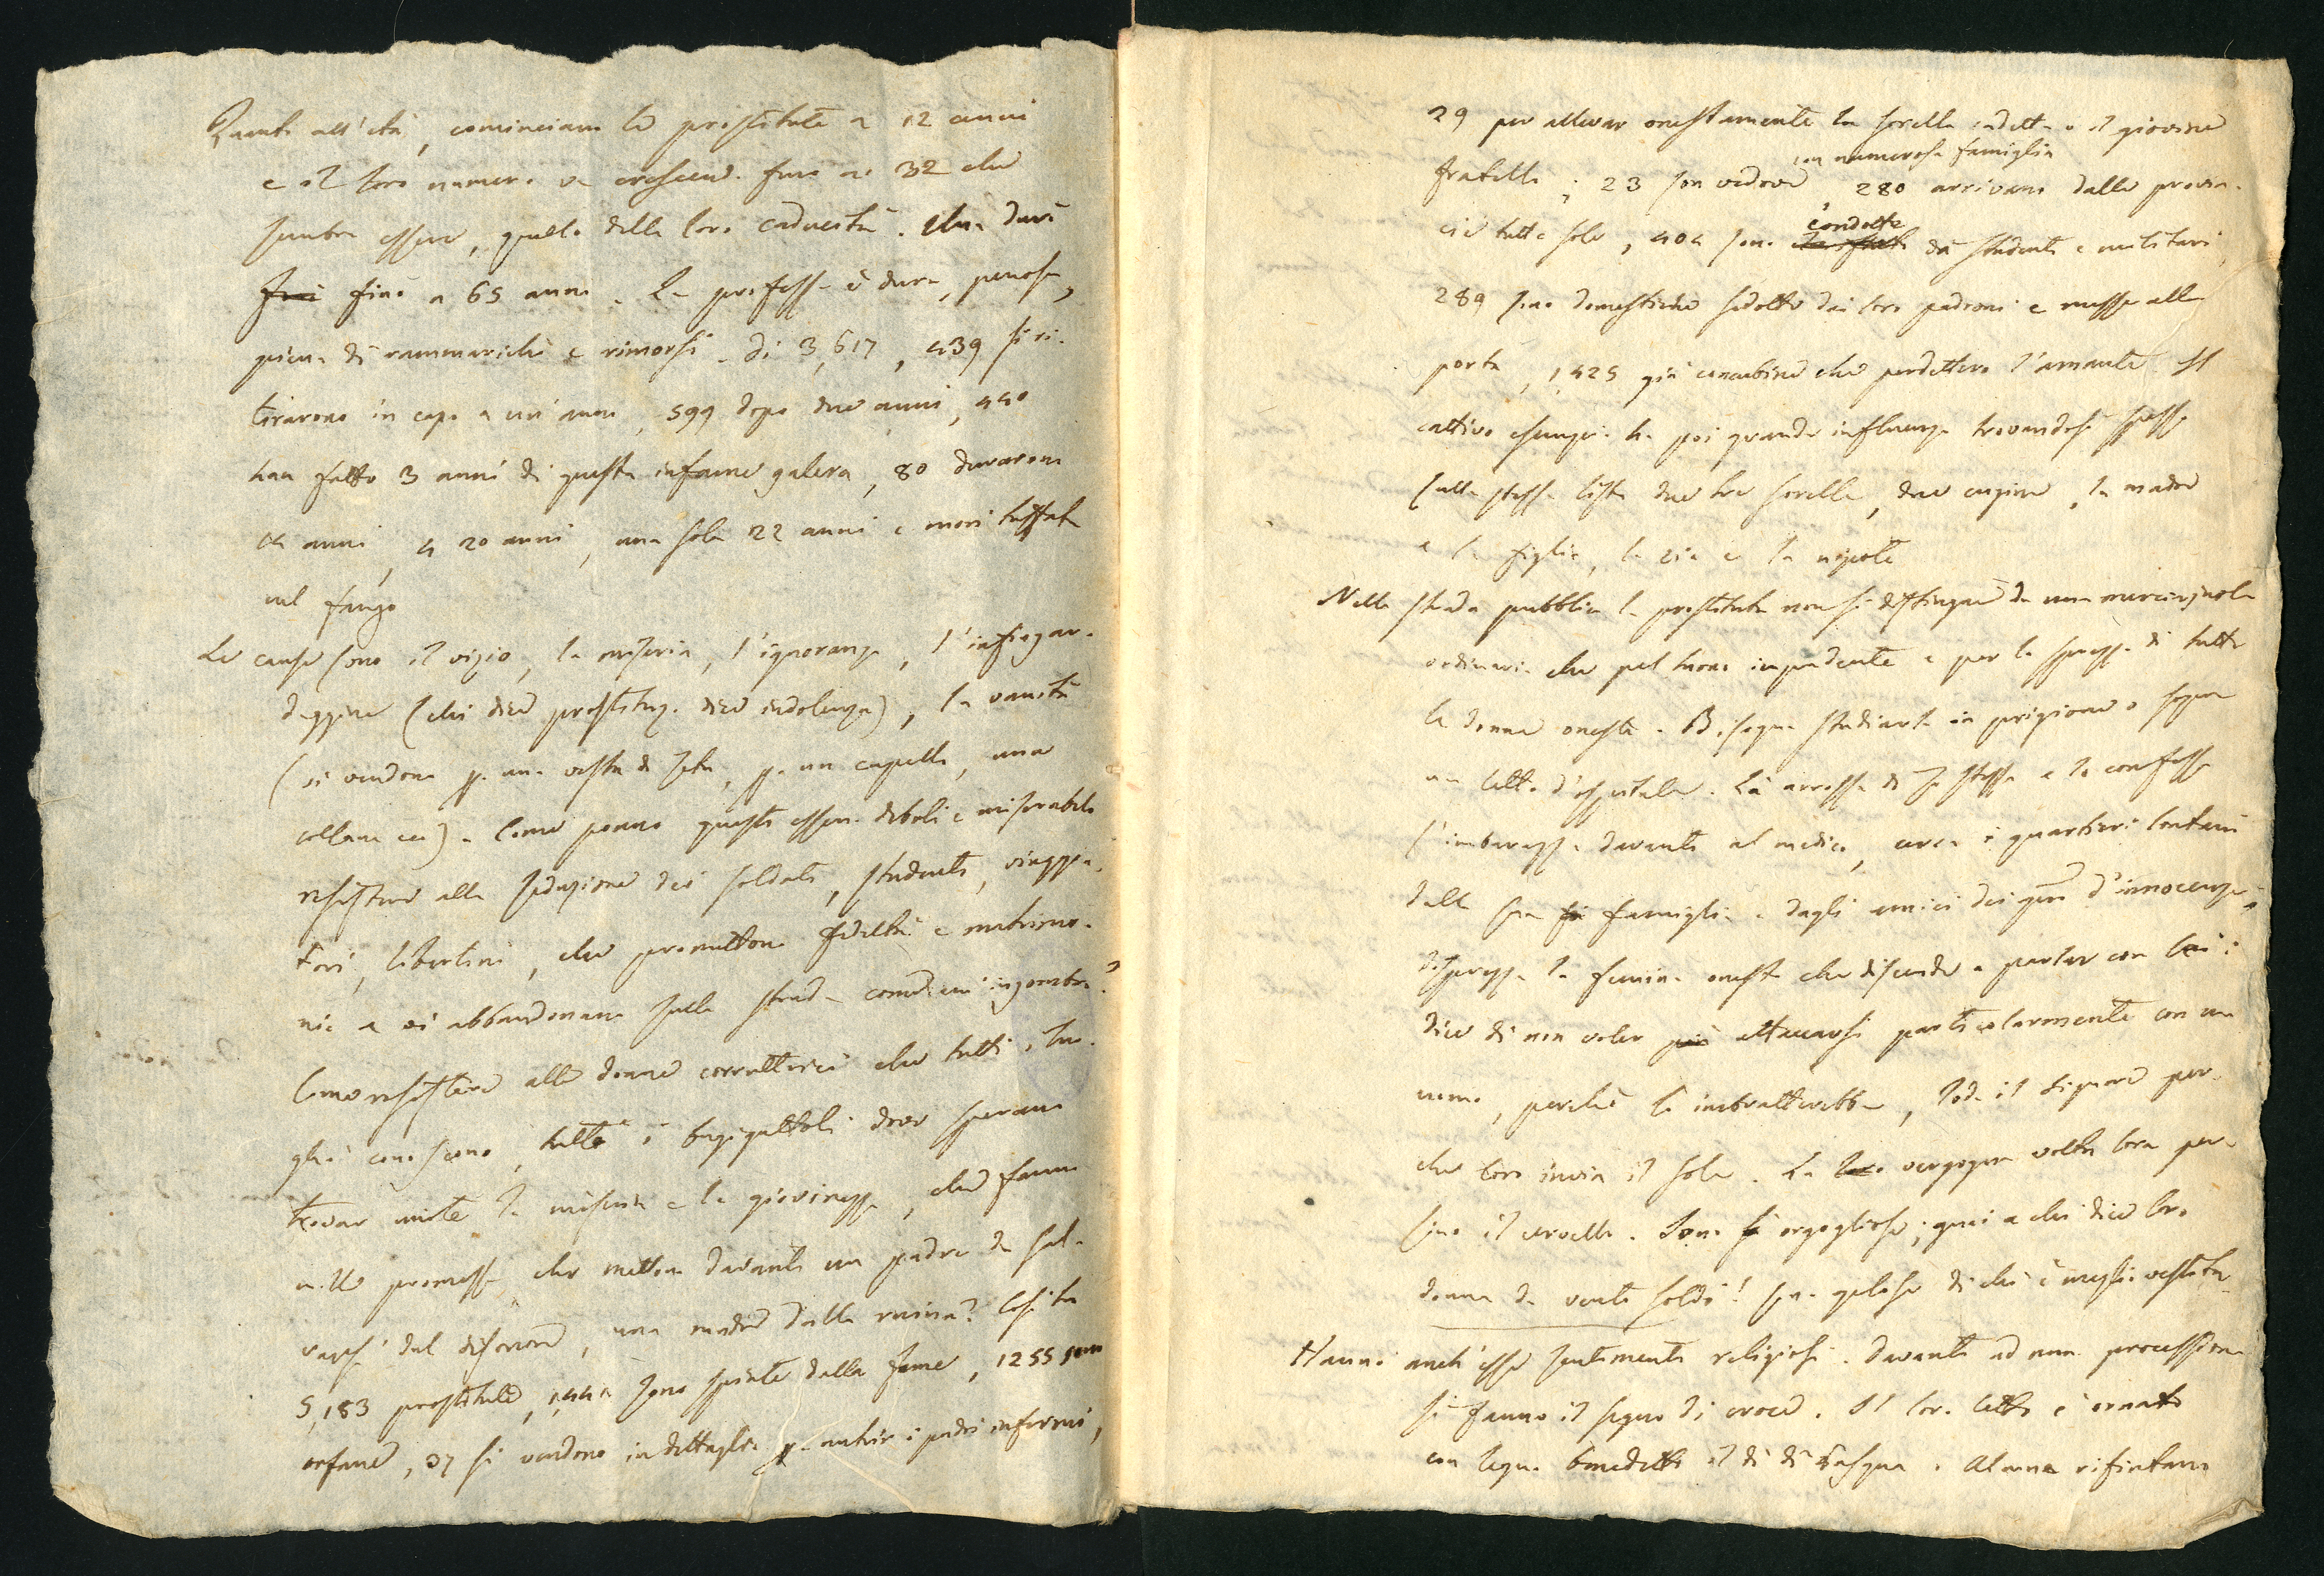 Quanto all'età, cominciano le prostitute a 12 anni
e il loro numero va crescendo fino ai 32 che
sembra essere, quello della loro caducità. Una durò
fino a 65 anni. La professa è dura, penosa,
piena di rammarichi e rimorsi. Di 3,617, 439 si ri-
tirarono in capo a un anno, 599 dopo due anni, 440
han fatto 3 anni di questa infame galera, 80 durarono
anni, 4 20 anni, una sola 22 anni e morì tuffata
nel fango
Le cause sono il vizio, la miseria, l'ignoranza, l'infingar-
daggine (chi dice prostituz. dice indolenza), la vanità
(si vendono p. una vesta di seta, p. un cappello, una
collana ec). Come ponno questi esseri deboli e miserabili
resistere alla seduzione dei soldati, studenti, viaggia-
tori, libertini, che promettono fedeltà e matrimo-
nio e vi abbandonano sulla strada come un ingombro?
Como resistere alle donne corruttrici che tutti i luo-
ghi conoscono, tutti i bugigattoli dove sperano
trovar unite la miseria e la giovinezza, che fanno
mille promesse, che metton davanti un padre da sal-
varsi dal disonore, una madre dalla ruina? Così tra
5,183 prostitute, 1,441 sono spinte dalla fame, 1255 son
orfane, 37 si vendono in dettaglio p. nutrir i padri infermi,
29 per allevar onestamente la sorella cadetta o il giovine
con numerosa famiglia
fratello; 23 son vedove 280 arrivano dalle provin-
condotte
cie tutte sole, 404 sono da studenti e militari,
289 sono domestiche sedotte dai loro padroni e messe alla
porta, 1,425 già concubine che perdettero l'amante. Il
cattivo esempio ha poi grande influenza trovandosi spesso
sulla stessa lista due tre sorelle, due cugine, la madre
e la figlia, la zia e la nipote
Nella strada pubblica la prostituta non si distingue da una
ordinaria che pel tuono impudente e per lo sprezzo di tutte
le donne oneste. Bisogna studiarla in prigione o sopra
un letto d'ospitale. Là arrossa di se stessa e lo confessa
l'imbarazza davanti al medico, cerca i quartieri lontani
dalla sua famiglia e dagli amici dei gni d'innocenza;
disprezza la femina onesta che discende a parlar con lei:
dice di non voler attaccarsi particolarmente con un
uomo, perchè lo imbratterebbe, loda il Signore per-
che loro invia il sole. La vergogna volta lora per-
sino il cervello. Sono orgogliose; guai a chi dice loro
donna da venti soldi! son gelose di chi è meglio vestita.
Hanno anch'esse sentimenti religiosi. Davanti ad una processione
si fanno il segno di croce. Il loro letto è ornato
con legno benedetto il dì di Pasqua. Alcune rifiutano